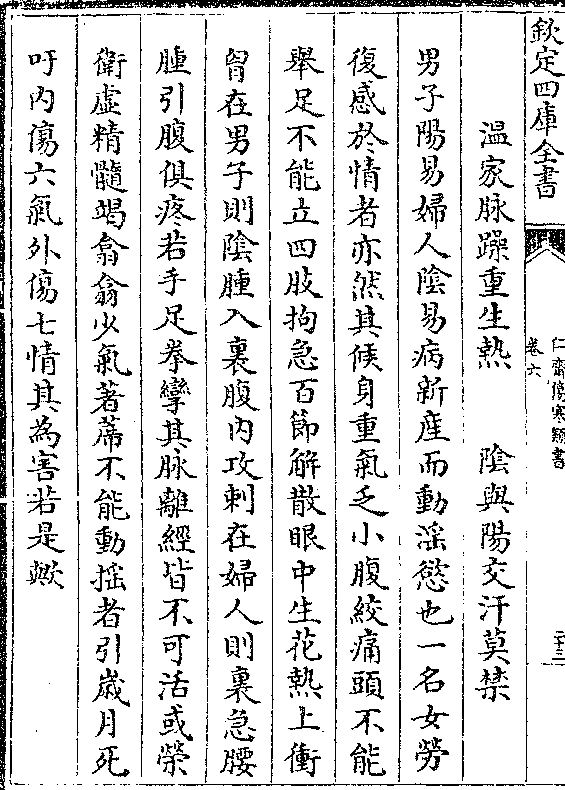 欽定四庫全書
仁齋傷寒類書
卷六
二十三
温家脉躁重生熱　陰與陽交汗莫禁
男子陽易婦人陰易病新産而動滛慾也一名女勞
復感於情者亦然其候身重氣乏小腹絞痛頭不能
舉足不能立四肢拘急百節解散眼中生花熱上衝
胷在男子則陰腫入裏腹内攻刺在婦人則裏急腰
腫引腹俱疼若手足拳攣其脉離經皆不可活或榮
衛虚精髓竭翕翕少氣著蓆不能動揺者引歳月死
吁内傷六氣外傷七情其為害若是歟